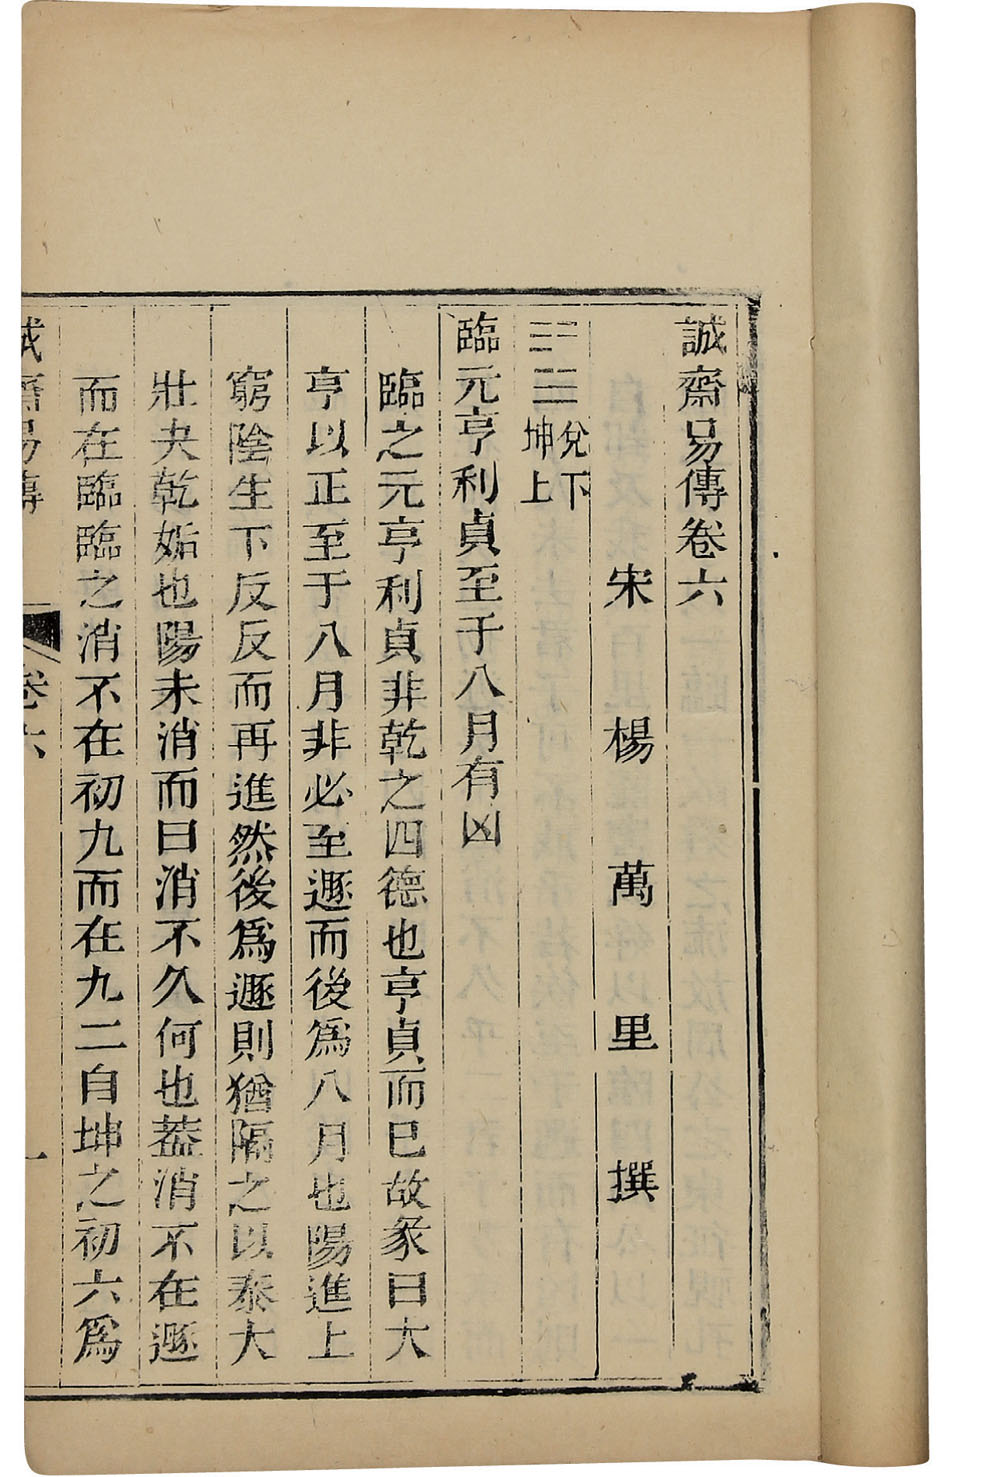 誠齋易傳卷六
宋楊萬里撰
兌下
坤上
臨元亨利貞至于八月有凶
臨之元亨利貞非乾之四德也亨貞而已故彖曰大
亨以正至于八月非必至遯而後爲八月也陽進上
窮陰生下反反而再進然後爲遯則猶隔之以泰大
壯夬乾姤也陽未消而曰消不久何也葢消不在遯
而在臨臨之消不在初九而在九二自坤之初六爲
誠齋易傳
卷六
一